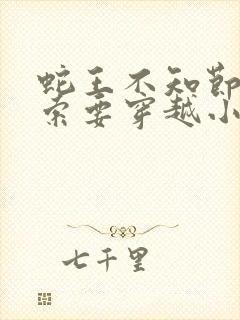 蛇王不知节
索要穿越小
七千里